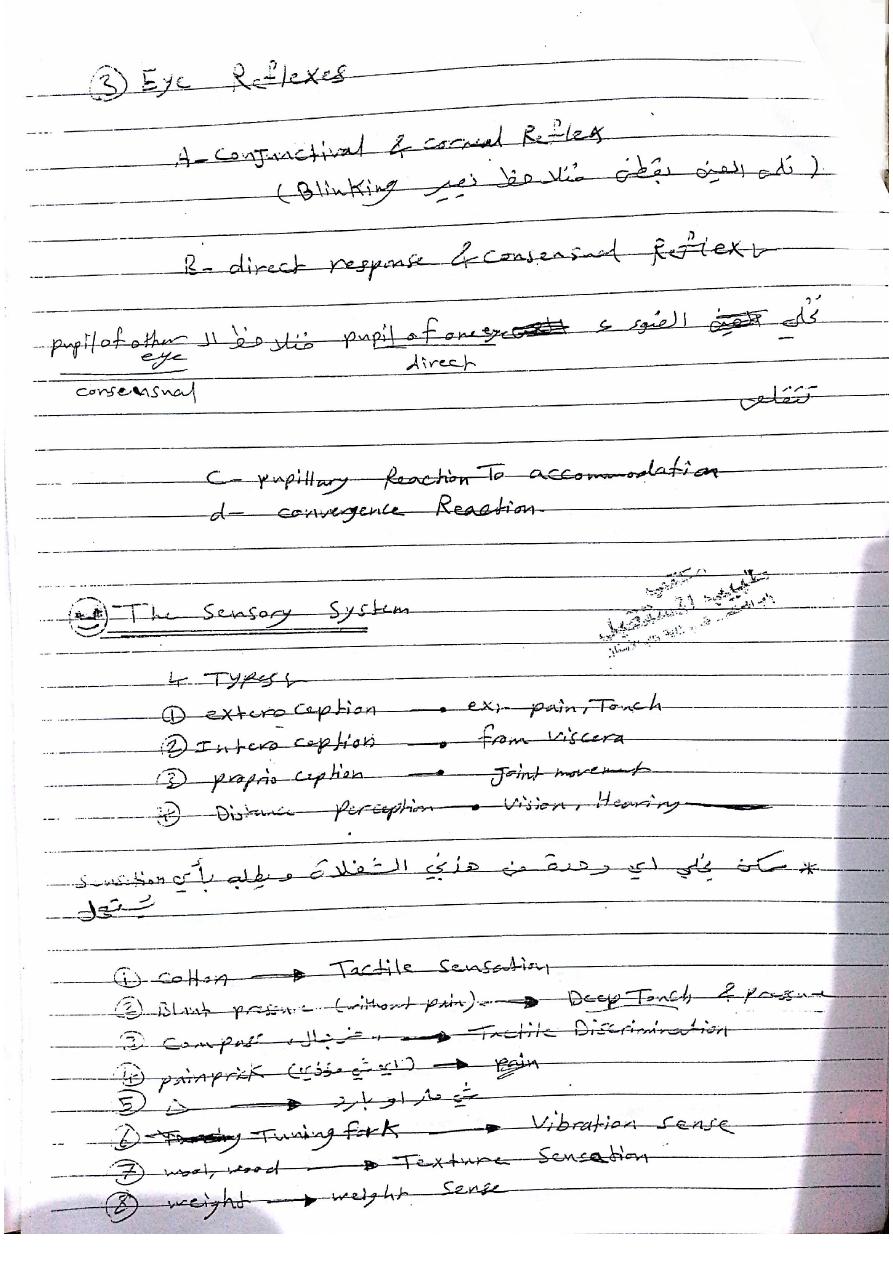 ③ Eye Reflexes
A- conjunctival & corneal Reflex
( نلمس العين بقطن فنلاحظ يصير Blinking )
B- direct response & consensual Reflex
نُخلي الضوء ع pupil of one eye فنلاحظ الـ pupil of other eye
direct
consensual
تتقلص
C- pupillary Reaction To accommodation
d- convergence Reaction
The Sensory System
4 Types
① exteroception • ex:- pain, Touch
② Interoception • from viscera
③ proprioception • Joint movement
④ Distance perception • Vision, Hearing
* ممكن يخلي اي وحدة من هذني الشغلات و يطلب بأي sensation
يستعمل
① Cotton → Tactile Sensation
② Blunt pressure (without pain) → Deep Touch & pressure
③ Compass → Tactile Discrimination
④ painprick (اي شي مؤذي) → pain
⑤ → شي حار او بارد
⑥ Tuning fork → Vibration sense
⑦ wool, wood → Texture Sensation
⑧ weight → weight Sense